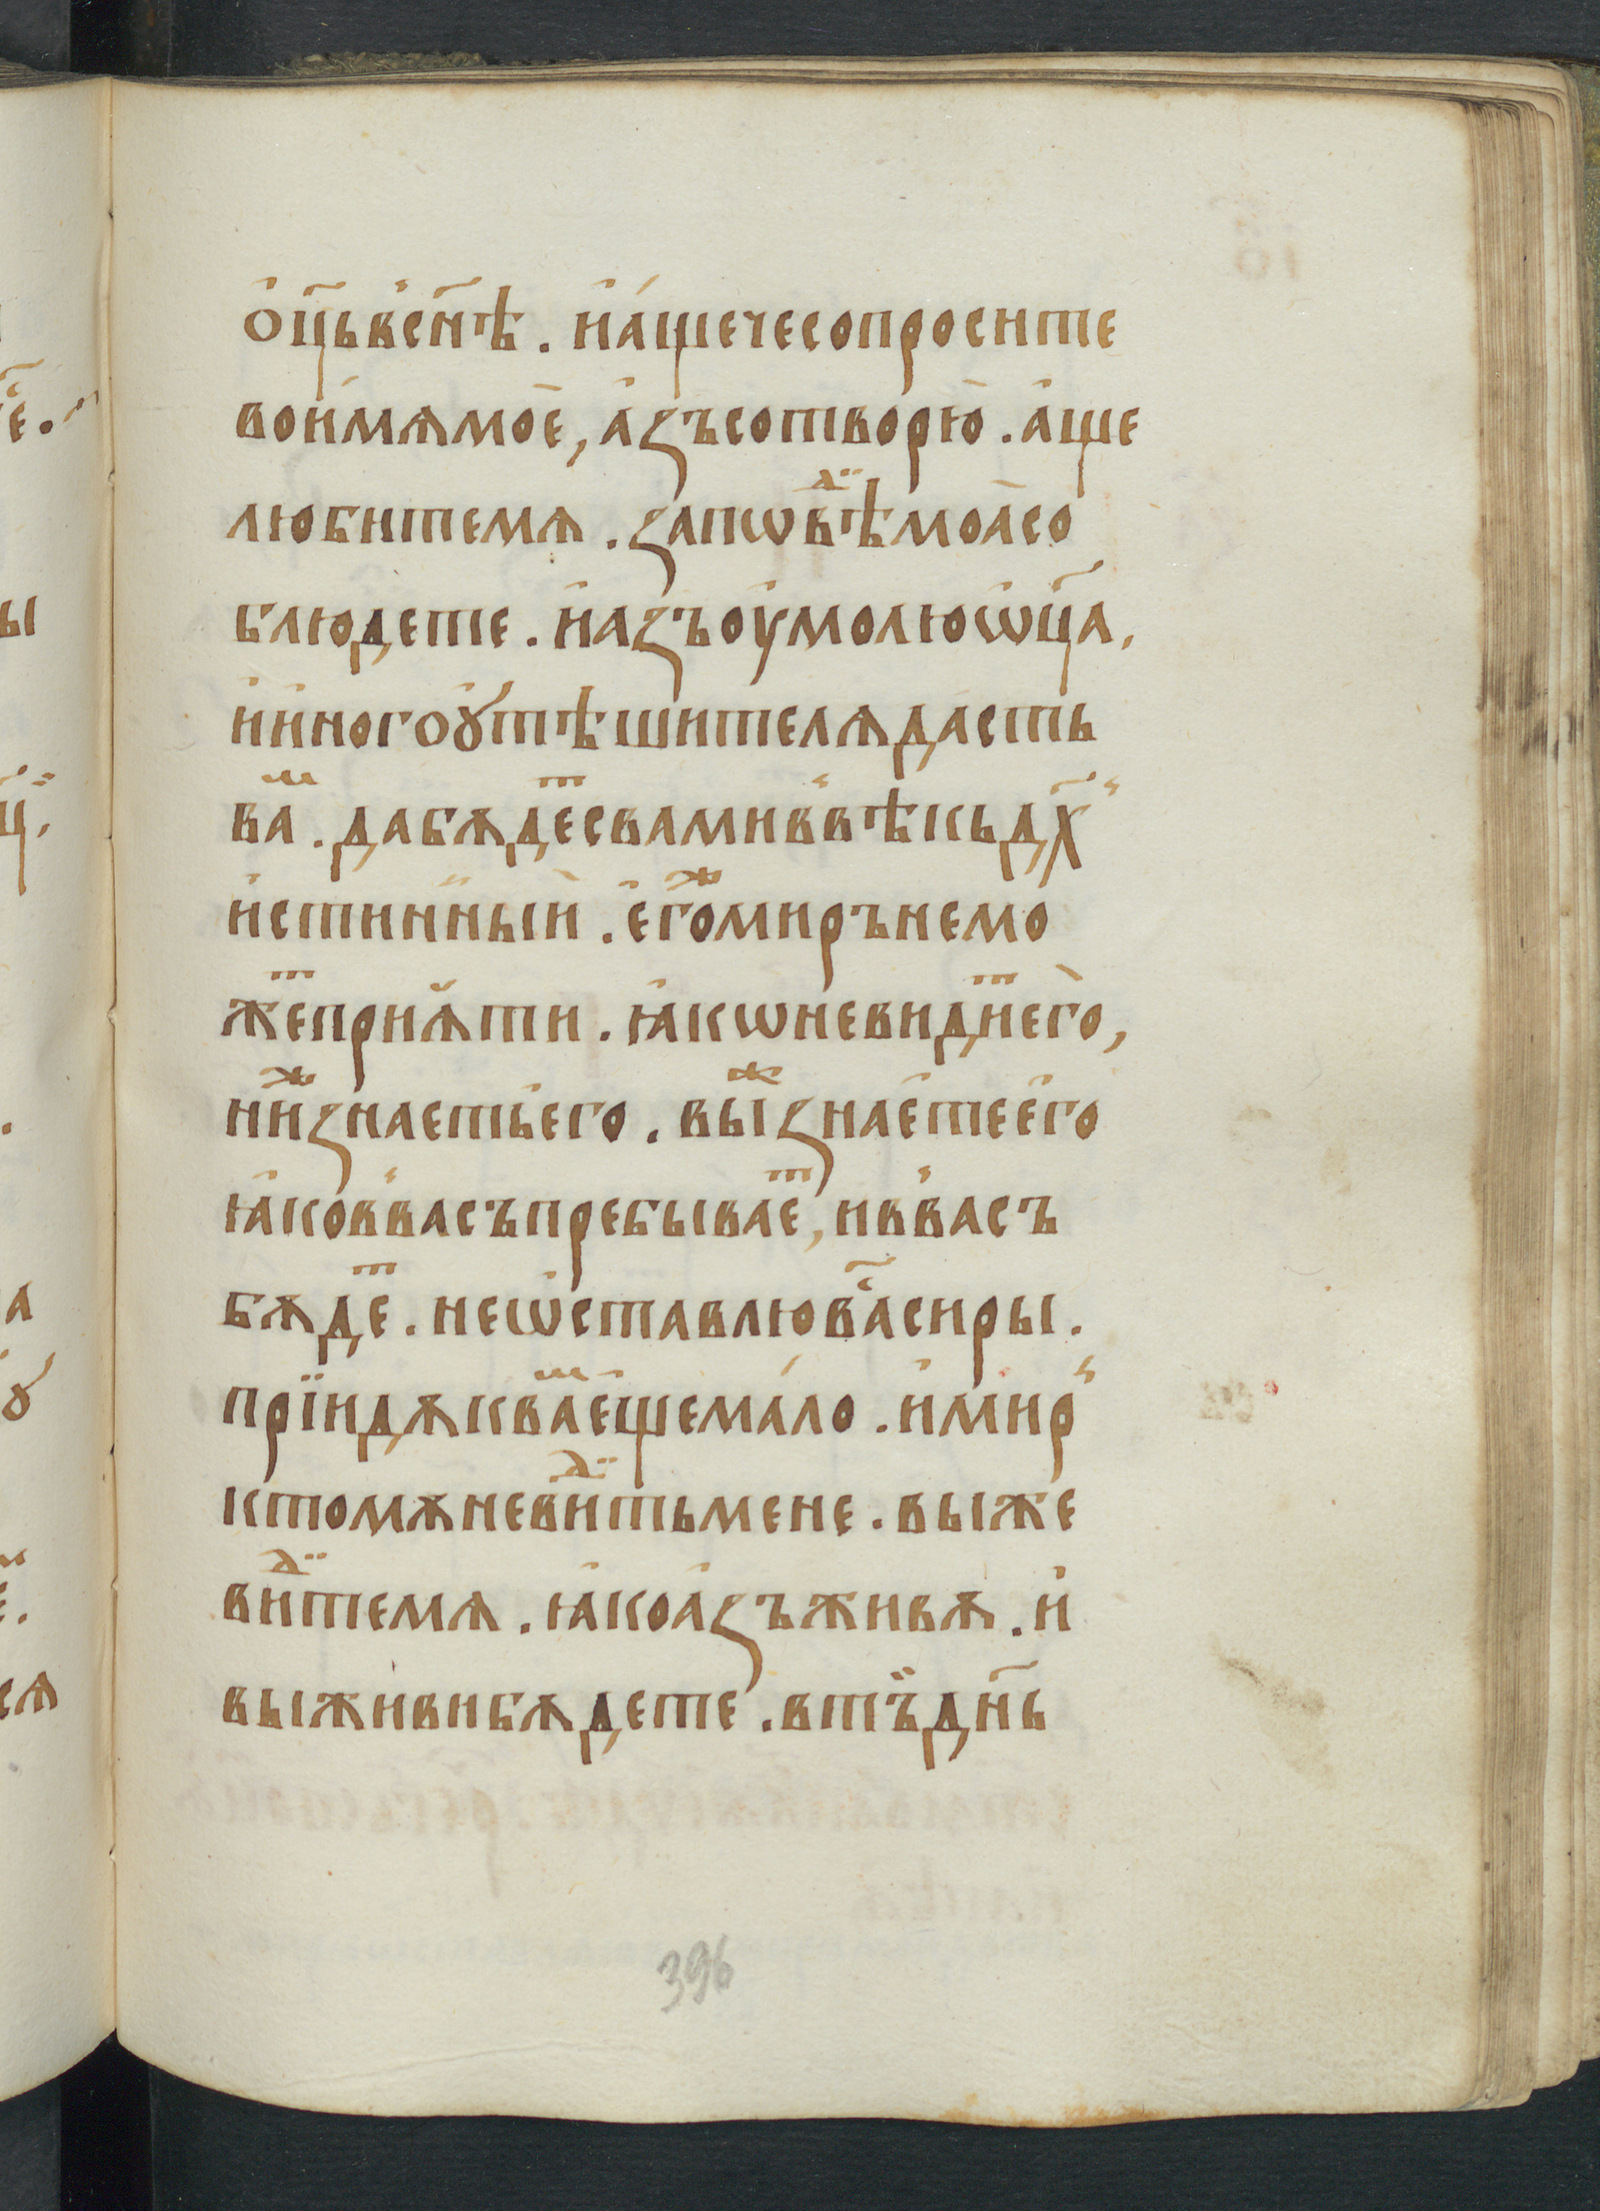 ѻ҆ц҃ьв҆сн҃ѣ . и҆а́щечесопросите
вои҆мѧмоѐ , а҆зъсотворю̀ . а҆ще
любитемѧ . запѡвⷣ҇ѣмоа̀со
блюдете . и҆азъоу҆молюѡ҆ц҃а ,
и҆и҆ногоꙋ҆тѣшителѧдасть
ваⷨ . дабѫдеⷮсвамив̾вѣкьдх҃̾
и҆стинныѝ . е҆гоⷤмирънемо
жеⷮприꙗ҆ти . ꙗ҆кѡневидиⷮего̀ ,
ниⷤзнаетьего . выⷤзнае҆тее҆го
ꙗ҆ков̾васъпребываеⷮ , ив̾васъ
бѫдеⷮ . неѡ҆ставлюваⷭ҇сиры .
прїидѫкваⷨе҆щема́ло . и҆мир̾
ктомѫневиⷣтьмене . выже
виⷣтемѧ . ꙗ҆коа҆зъживѫ . и҆
выживибѫдете . втъ̈дн҃ь
396